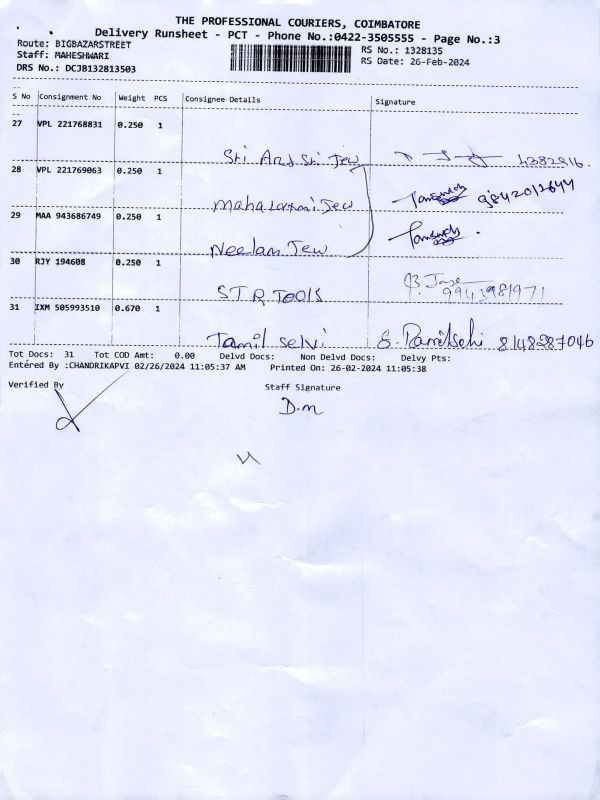 THE PROFESSIONAL COURIERS, COIMBATORE
Delivery Runsheet - PCT - Phone No.:0422-3505555 - Page No.:3
Route: BIGBAZARSTREET
Staff: MAHESHWARI
DRS No.: DCJB132813503
RS No.: 1328135
RS Date: 26-Feb-2024
S No Consignment No Weight PCS Consignee Details Signature
27 VPL 221768831 0.250 1
Sri And Sri Jew 4382916.
28 VPL 221769063 0.250 1
Maha Laxmi Jew 9842012644
29 MAA 943686749 0.250 1
Neelam Jew
30 RJY 194608 0.250 1
STR TOOLS 9943981971
31 IXM 505993510 0.670 1
Tamil Selvi 8148287046
Tot Docs: 31 Tot COD Amt: 0.00 Delvd Docs: Non Delvd Docs: Delvy Pts:
Entered By :CHANDRIKAPVI 02/26/2024 11:05:37 AM Printed On: 26-02-2024 11:05:38
Verified By Staff Signature
D.m